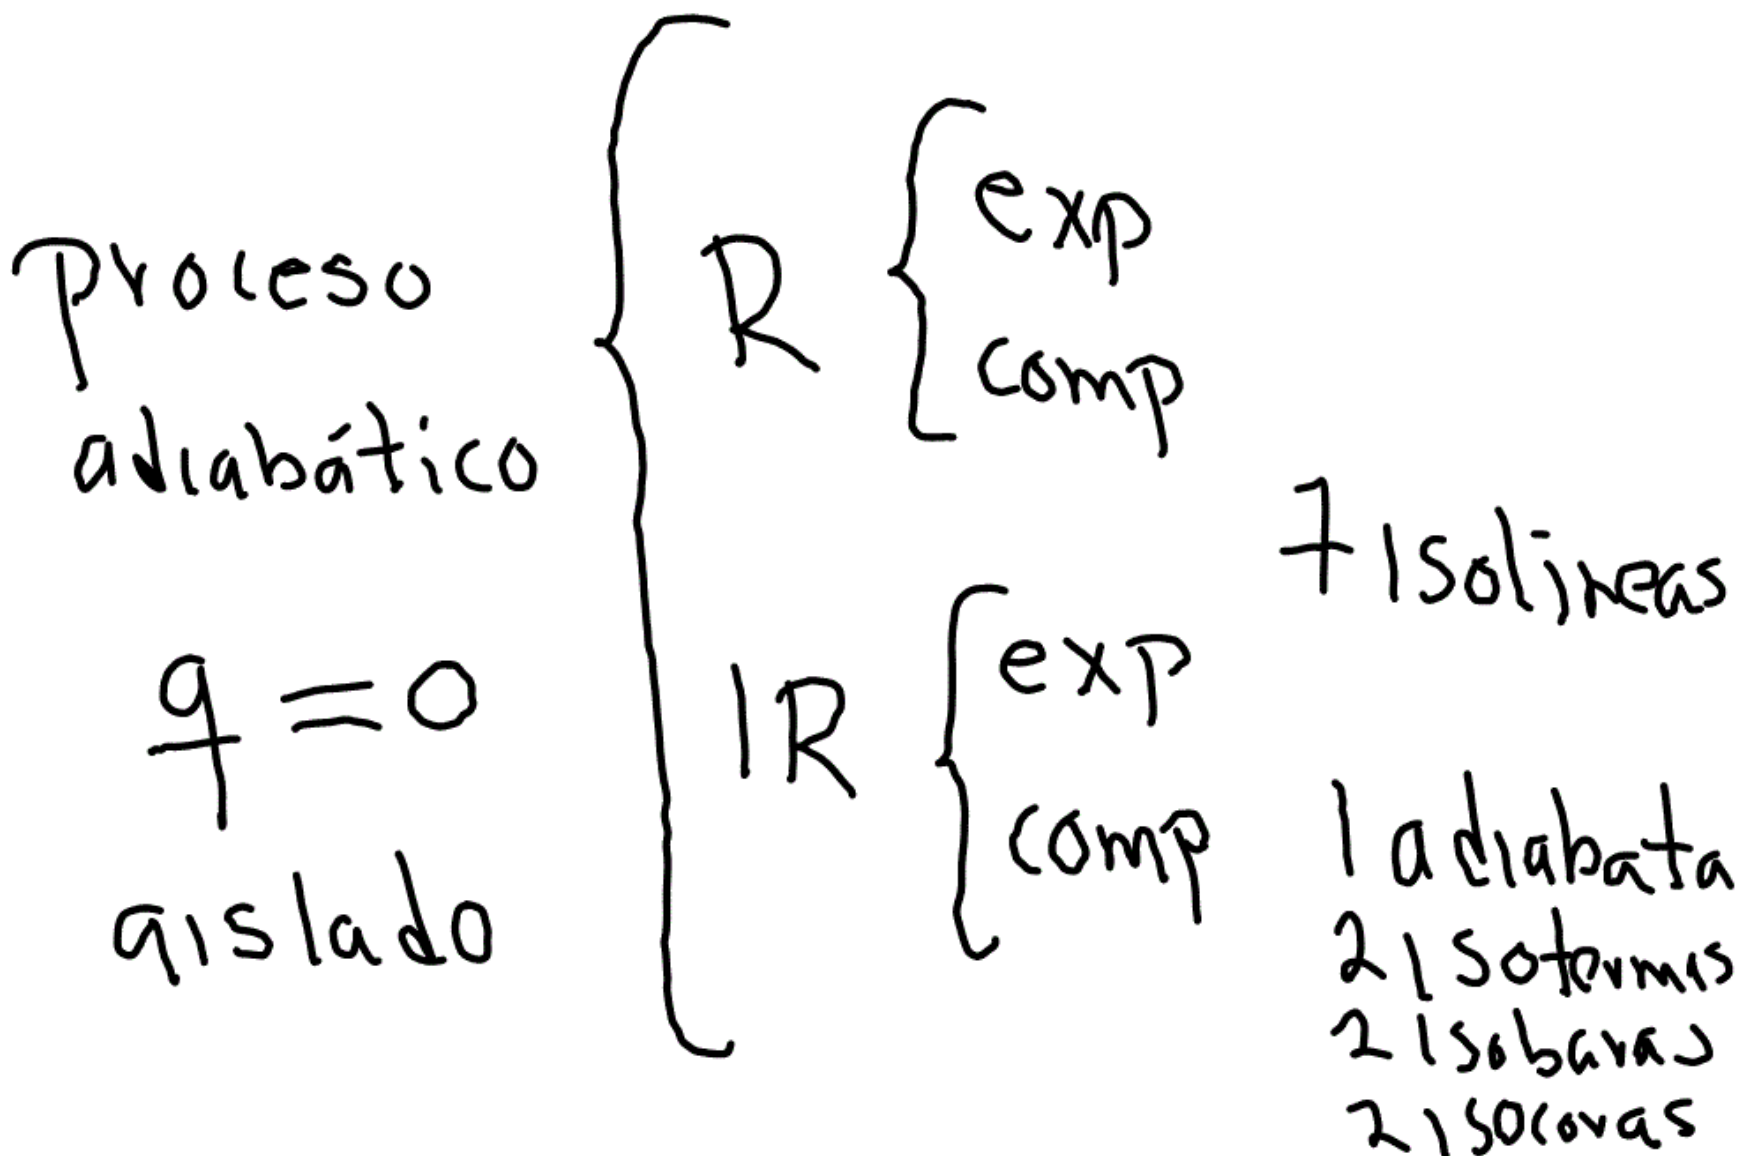 proceso
adiabático
q = 0
aislado
R
exp
comp
IR
exp
comp
7 Isolineas
1 adiabata
2 Isotermas
2 Isobaras
2 Isocoras